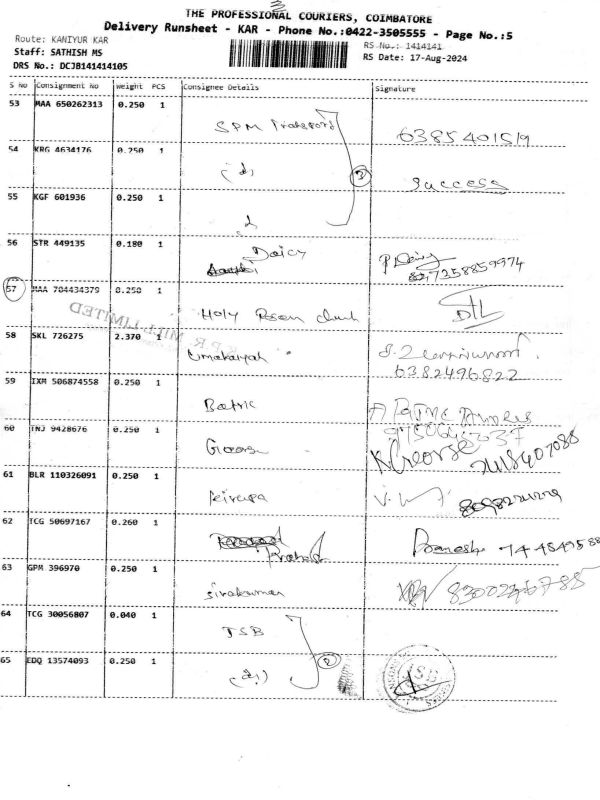 THE PROFESSIONAL COURIERS, COIMBATORE
Delivery Runsheet - KAR - Phone No.:0422-3505555 - Page No.:5
Route: KANIYUR KAR
RS No.: 1414141
Staff: SATHISH MS
RS Date: 17-Aug-2024
DRS No.: DCJB141414105
S No Consignment No Weight PCS Consignee Details Signature
53 MAA 650262313 0.250 1
SPM Transport 6385401519
54 KRG 4634176 0.250 1
(d) 3 Success
55 KGF 601936 0.250 1
56 STR 449135 0.180 1
Daicy P. Daisy
7358859974
57 MAA 704434379 0.250 1
Holy Rosary Church
K.P.R. MILL LIMITED
58 SKL 726275 2.370 1
Umakaiyah
6382496822
59 IXM 506874558 0.250 1
Batric
60 TNJ 9428676 0.250 1
George K George
61 BLR 110326091 0.250 1
62 TCG 50697167 0.260 1
Pramesh
63 GPM 396970 0.250 1
Sivakumar 8300246785
64 TCG 30056807 0.040 1
TSB
65 EDQ 13574093 0.250 1
(d) 2